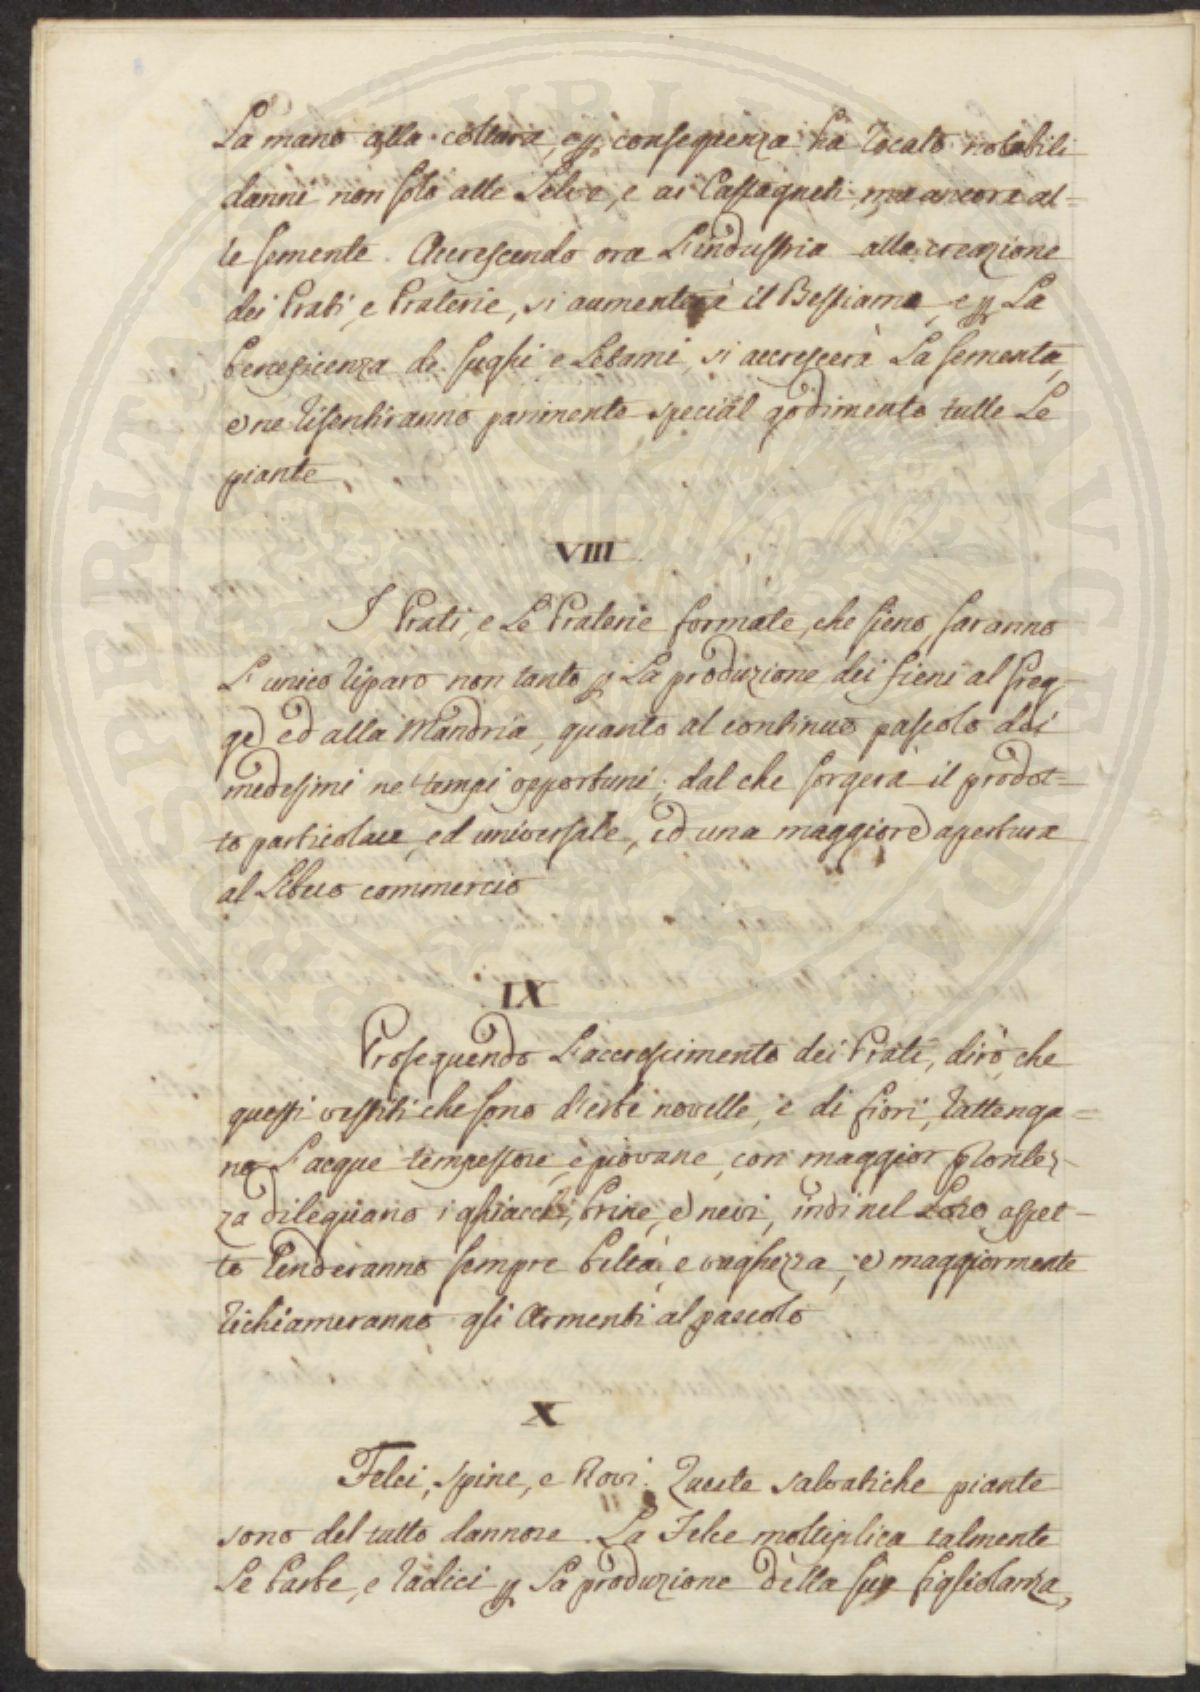 La mano alla coltura, e p consequenza ha recato notabili
danni non solo alle Selve, e ai Castagneti, ma ancora al=
le semente. Accrescendo ora L'industria alla creazione
dei Prati, e Praterie, si aumenterà il Bestiame, e p La
beneficenza de sughi e Letami, si accrescerà La sementa,
e ne risentiranno parimente special godimento tutte Le
piante.
VIII
I Prati, e Le Praterie formate, che sieno, saranno
L'unico riparo non tanto p La produzione dei fieni al Greg=
ge, ed alla Mandria, quanto al continuo pascolo dei
medesimi ne' tempi opportuni; dal che sorgerà il prodot=
to particolare, ed universale, ed una maggiore apertura
al Libero commercio
IX
Proseguendo L'accrescimento dei Prati, dirò, che
questi vestiti che sono d'erbe novelle, e di fiori, rattenga=
no L'acque tempestose, e piovane, con maggior prontez=
za dileguano i ghiacci, brine, e nevi, indi nel Loro aspet=
to renderanno sempre beltà, e vaghezza, e maggiormente
richiameranno gli Armenti al pascolo
X
Felci, spine, e Rovi. Queste salvatiche piante
sono del tutto dannose. La Felce moltiplica talmente
Le barbe, e radici p La produzione della sua figliolanza,